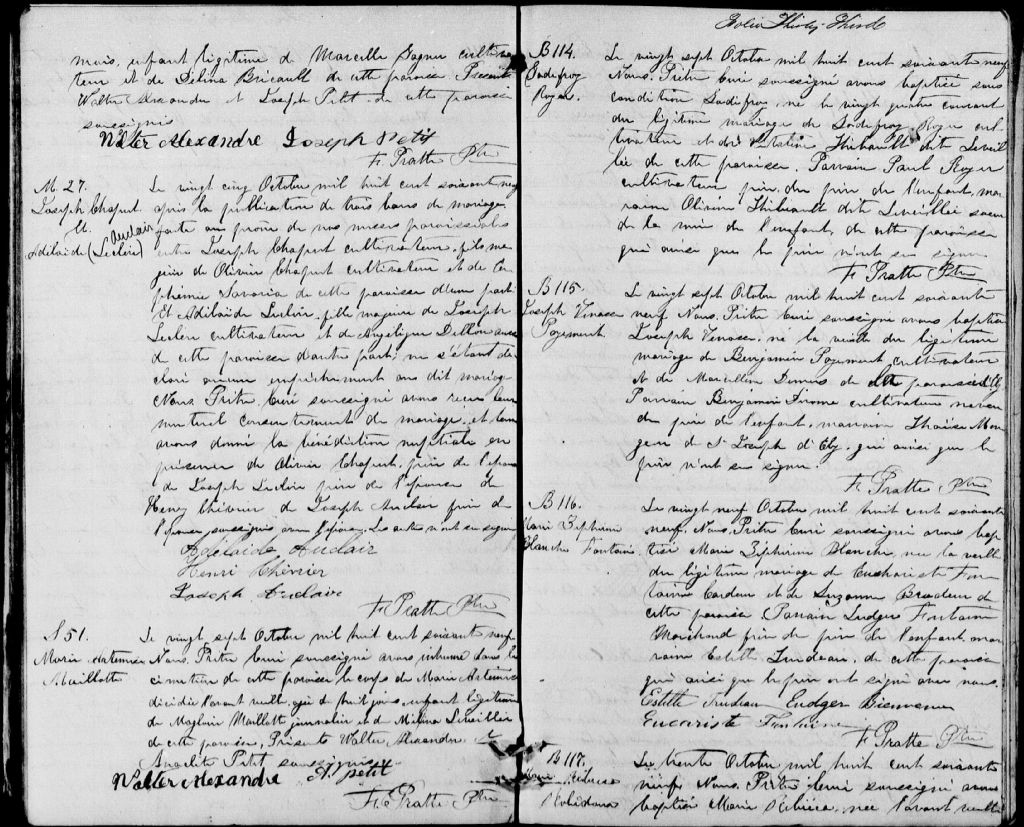 mois, enfant légitime de Marcelle Gagner cultiva
teur et de Délina Bricault de cette paroisse Présents
Walter Alexandre et Joseph Petit de cette paroisse
soussignés
Walter Alexandre Joseph Petit
F. Pratte Ptre
M. 27.
Joseph Chaput
et
Auclair
Adélaide (Leclerc)
Le vingt cinq Octobre mil huit cent soixante neuf
après la publication de trois bans de mariage
faite au prone de nos messes paroissiales
entre Joseph Chaput cultivateur, fils ma
jeur de Olivier Chaput cultivateur et de Eu
phémie Savaria de cette paroisse d'une part
Et Adélaide Leclerc, fille majeure de Joseph
Leclerc cultivateur et de Angélique Dillon aussi
de cette paroisse d'autre part; ne s'étant dé
claré aucun empêchement au dit mariage
Nous Prêtre Curé soussigné avons reçu leur
mutuel consentement de mariage et leur
avons donné la bénédiction nuptiale en
présence de Olivier Chaput, père de l'époux
de Joseph Leclerc père de l'épouse de
Henry Chévrier de Joseph Auclair frère de
l'épouse soussignés avec l'épouse. Les autres n'ont su signer
Adélaide Auclair
Henri Chévrier
Joseph Auclair
F. Pratte Ptre
S 51.
Marie Artemise
Maillotte
Le vingt sept Octobre mil huit cent soixante neuf
Nous Prêtre Curé soussigné avons inhumé dans le
cimetière de cette paroisse le corps de Marie Artemise
décédée l'avant veille, agée de huit jours, enfant légitime
de Maglair Maillotte journalier et de Mélina Léveillée
de cette paroisse, Présents Walter Alexandre et
Anaclite Petit soussignés
Walter Alexandre A. petit
F. Pratte Ptre
Folio Thirty-Third
B 114.
Godefroy
Royer.
Le vingt sept Octobre mil huit cent soixante neuf
Nous, Prêtre Curé soussigné avons baptisé sous
condition Godefroy, né le vingt quatre courant
du légitime mariage de Godefroy Royer cul
tivateur et de Thibault dit Léveil
lée de cette paroisse. Parrain Paul Royer
cultivateur père du père de l'enfant, mar
raine Olivine Thibault dite Léveillée soeur
de la mère de l'enfant, de cette paroisse
qui ainsi que le père n'ont su signer
F. Pratte Ptre
B 115.
Joseph Venasse
Payement.
Le vingt sept Octobre mil huit cent soixante
neuf Nous, Prêtre Curé soussigné avons baptisé
Joseph Venasse, né la veille du légitime
mariage de Benjamin Payement, cultivateur
et de Marcelline Demers de paroisse d'Ely
Parrain Benjamin cultivateur neveu
du père de l'enfant, marraine Thaise Mon
geon de St Joseph d'Ely, qui ainsi que le
père n'ont su signer.
F. Pratte Ptre
B 116.
Marie Ziphirine
Blanche Fontaine.
Le vingt neuf Octobre mil huit cent soixante
neuf, Nous Prêtre Curé soussigné avons bap
tisé Marie Ziphirine Blanche, née la veille
du légitime mariage de Euchariste Fon
taine Cordeur et de Suzanne Brodeur de
cette paroisse Parrain Ludger Fontaine
Marchand frère du père de l'enfant, mar
raine Estelle Trudeau, de cette paroisse
qui ainsi que le père ont signé avec nous.
Estelle Trudeau Ludger Bienvenue
Eucariste Fontaine
F. Pratte Ptre
B 117.
Marie
Le trente Octobre mil huit cent soixante
neuf Nous Prêtre Curé soussigné avons
baptisé Marie née l'avant veille